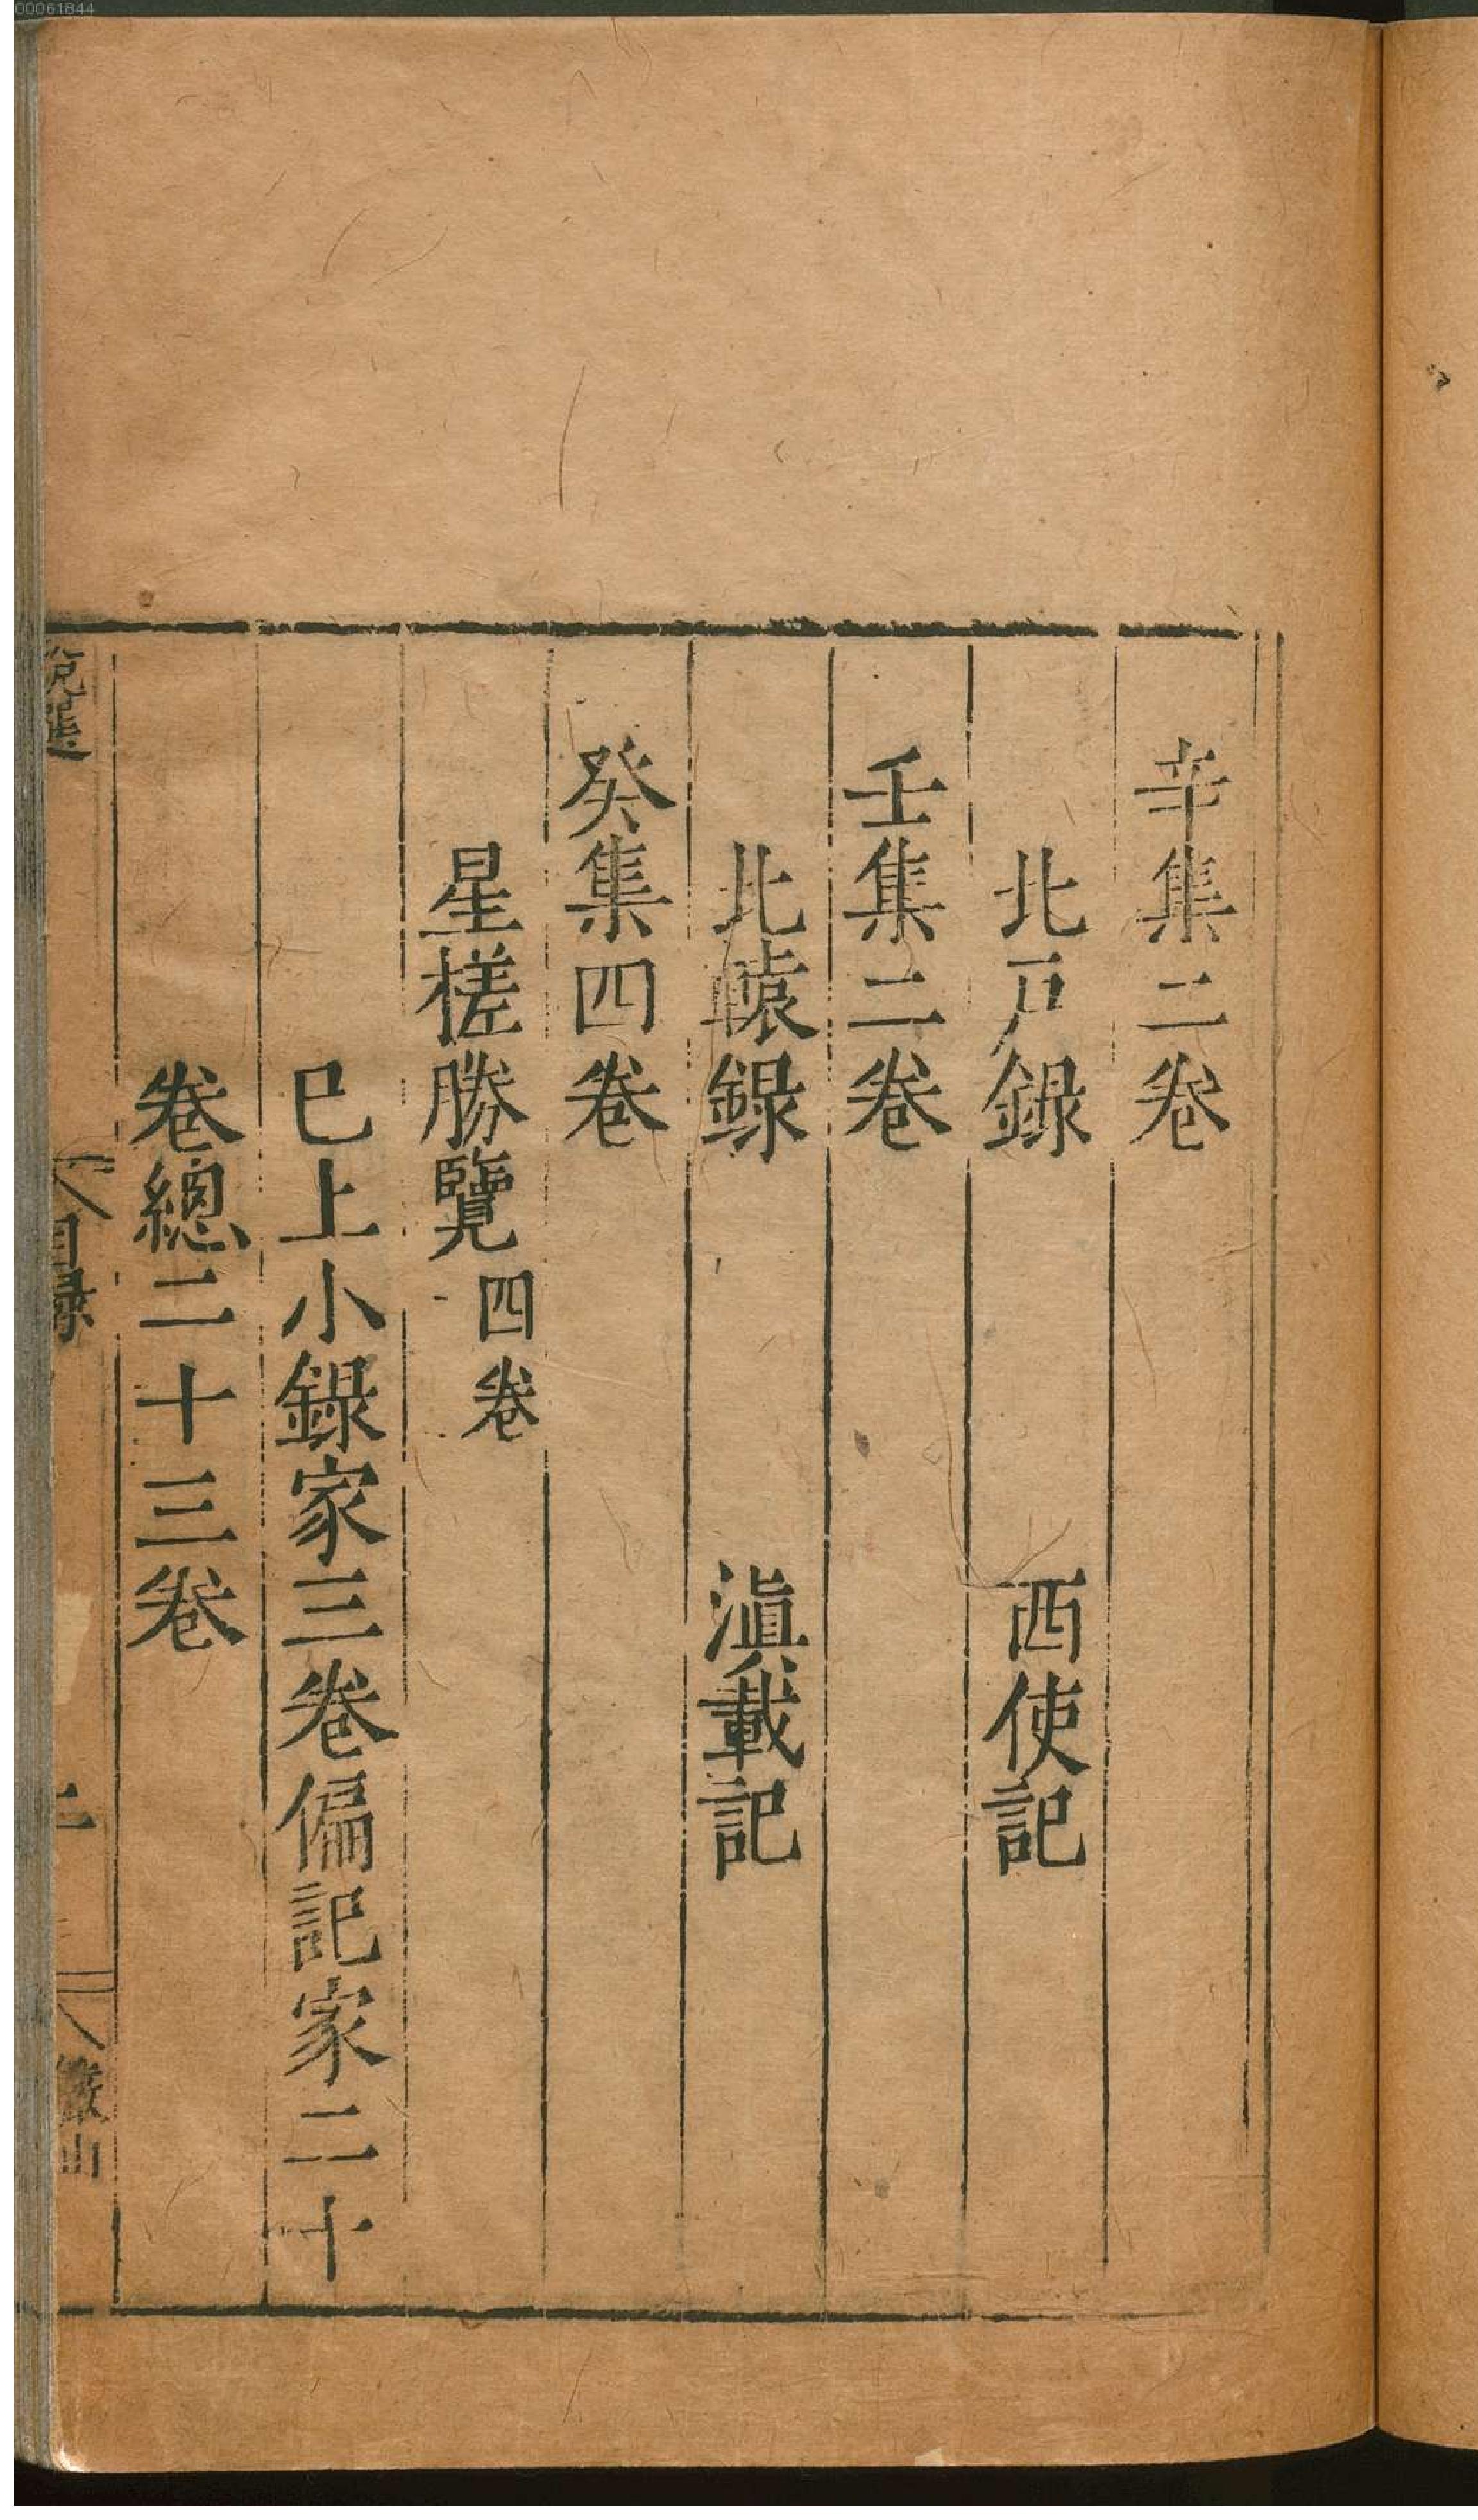 00061844
辛集二卷
北戸録　西使記
壬集二卷
北轅録　滇載記
癸集四卷
星槎勝覽四卷
已上小録家三卷偏記家二十
卷總二十三卷
説選
目録
二
儼山